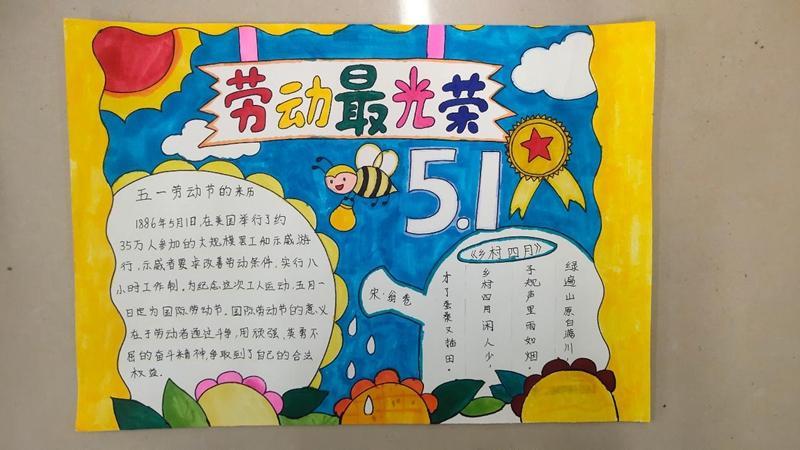 劳动最光荣
5.1
五一劳动节的来历
1886年5月1日,在美国举行了约
35万人参加的大规模罢工和示威游
行,示威者要求改善劳动条件,实行八
小时工作制,为纪念这次工人运动,五月一
日也为国际劳动节。国际劳动节的意义
在于劳动者通过斗争,用顽强、英勇不
屈的奋斗精神,争取到了自己的合法
权益。
《乡村四月》
宋·翁卷
绿遍山原白满川,
子规声里雨如烟。
乡村四月闲人少,
才了蚕桑又插田。